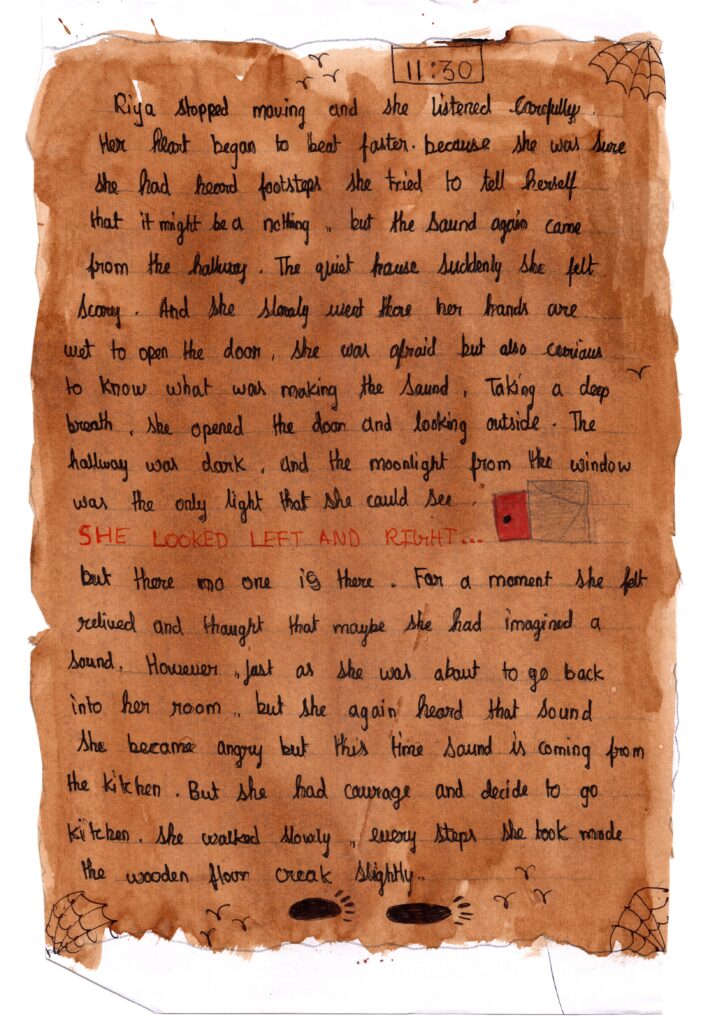 11:30
Riya stopped moving and she listened Carefully.
Her heart began to beat faster. because she was sure
she had heard footsteps she tried to tell herself
that it might be a nothing .. but the sound again came
from the hallway. The quiet house suddenly she felt
scary. And she slowly went there her hands are
wet to open the door, she was afraid but also curious
to know what was making the sound, Taking a deep
breath, she opened the door and looking outside. The
hallway was dark, and the moonlight from the window
was the only light that she could see.
SHE LOOKED LEFT AND RIGHT...
but there no one is there. For a moment she felt
relived and thought that maybe she had imagined a
sound. However, just as she was about to go back
into her room.. but she again heard that sound
she became angry but this time sound is coming from
the kitchen. But she had courage and decide to go
kitchen. she walked slowly .. every steps she took made
the wooden floor creak slightly..